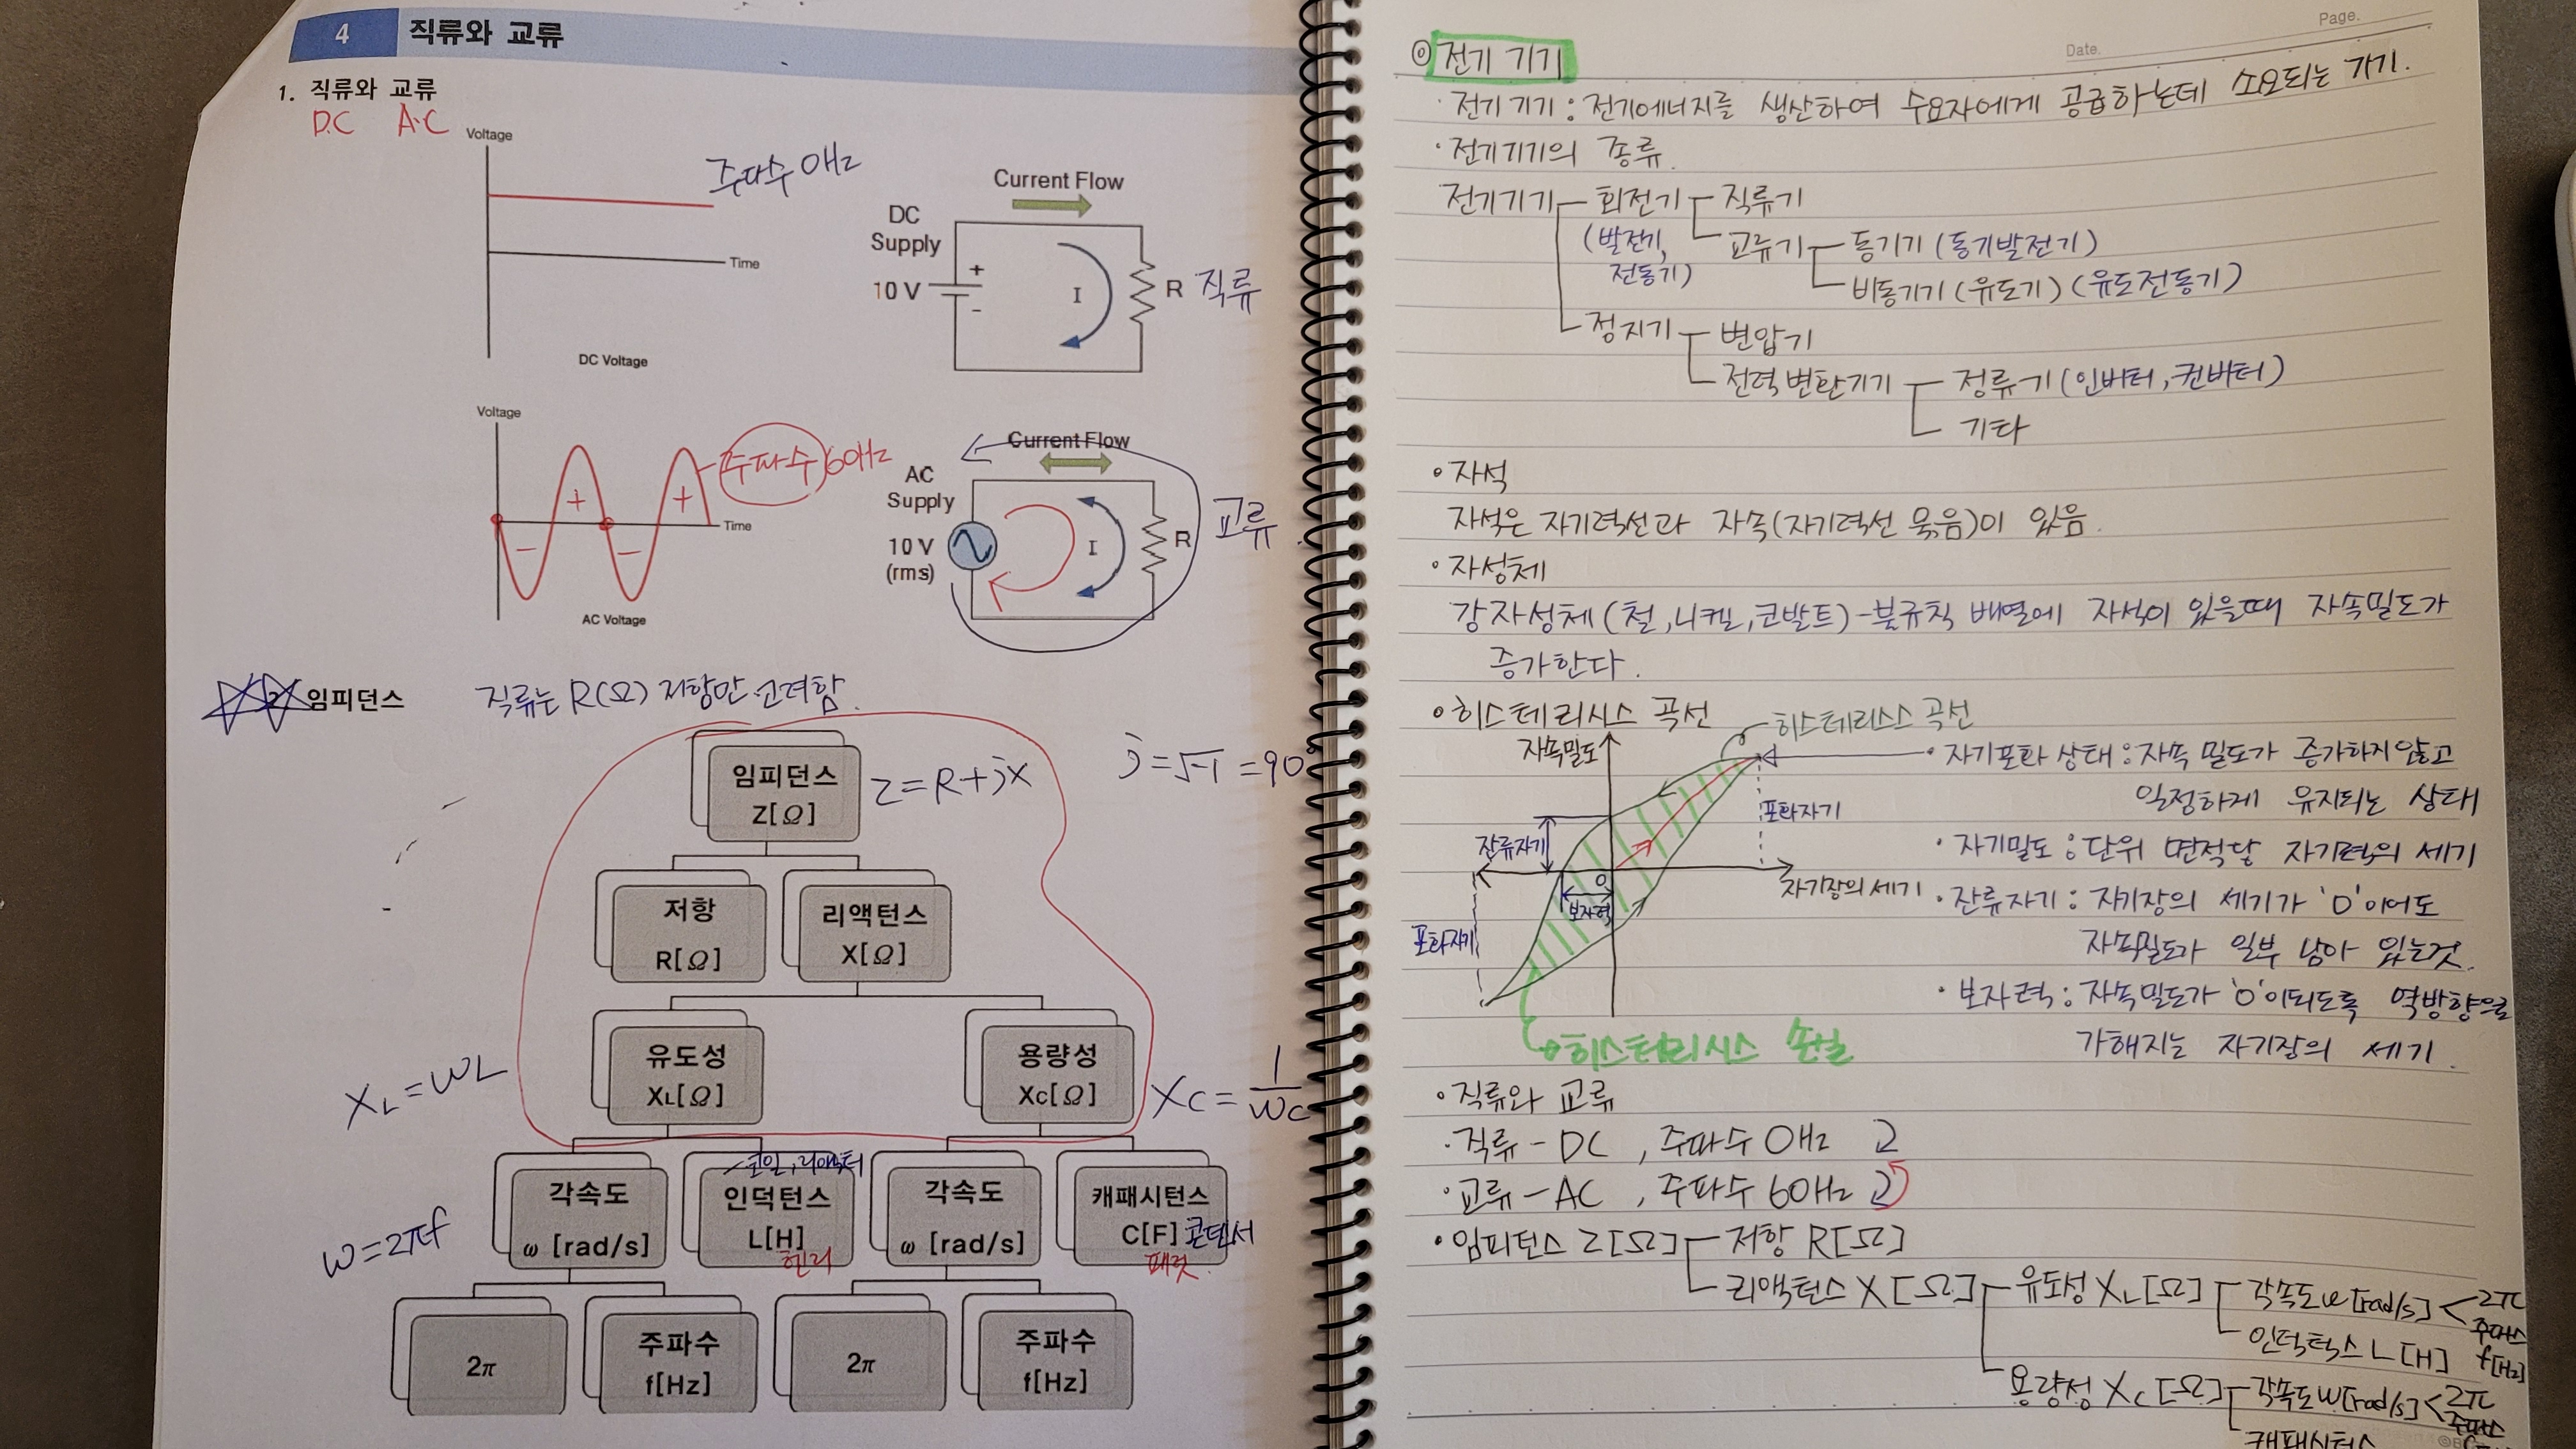 4 직류와 교류
1. 직류와 교류
D.C A.C
Voltage
주파수 0Hz
Time
DC Voltage
Current Flow
DC
Supply
10 V
+
-
I
R 직류
Voltage
주파수 60Hz
+ +
- -
Time
AC Voltage
Current Flow
AC
Supply
10 V
(rms)
I
R 교류
임피던스 직류는 R(Ω) 저항만 고려함.
임피던스
Z[Ω]
Z=R+jX
j=√-1=90°
저항
R[Ω]
리액턴스
X[Ω]
유도성
XL[Ω]
XL=WL
용량성
Xc[Ω]
Xc=1/wc
각속도
ω [rad/s]
코일, 리액터
인덕턴스
L[H]
헨리
각속도
ω [rad/s]
캐패시턴스
C[F] 콘덴서
패럿
W=2πf
2π
주파수
f[Hz]
2π
주파수
f[Hz]
Page.
Date.
◎ 전기 기기
· 전기 기기 : 전기에너지를 생산하여 수요자에게 공급하는데 소요되는 기기.
· 전기기기의 종류.
전기기기 회전기 직류기
(발전기, 전동기)
교류기 동기기 (동기발전기)
비동기기 (유도기) (유도전동기)
정지기 변압기
전력변환기기 정류기 (인버터, 컨버터)
기타
• 자석
자석은 자기력선과 자속(자기력선 묶음)이 있음.
• 자성체
강자성체 (철, 니켈, 코발트) - 불규칙 배열에 자석이 있을때 자속밀도가
증가한다.
• 히스테리시스 곡선
히스테리스스 곡선
자속밀도
잔류자기
포화자기
0
보자력
자기장의 세기
포화자기
히스테리시스 손실
· 자기포화 상태 : 자속 밀도가 증가하지 않고
일정하게 유지되는 상태
· 자기밀도 : 단위 면적당 자기력의 세기
· 잔류자기 : 자기장의 세기가 '0'이어도
자속밀도가 일부 남아 있는것.
· 보자력 : 자속밀도가 '0'이되도록 역방향으로
가해지는 자기장의 세기.
• 직류와 교류
· 직류 - DC , 주파수 0Hz
· 교류 - AC , 주파수 60Hz
• 임피던스 Z[Ω] 저항 R[Ω]
리액턴스 X[Ω] 유도성 XL[Ω] 각속도 w[rad/s] < 2π
주파수 f[Hz]
인덕턱스 L[H]
용량성 Xc[Ω] 각속도 w[rad/s] < 2π
주파수
캐패시턴스